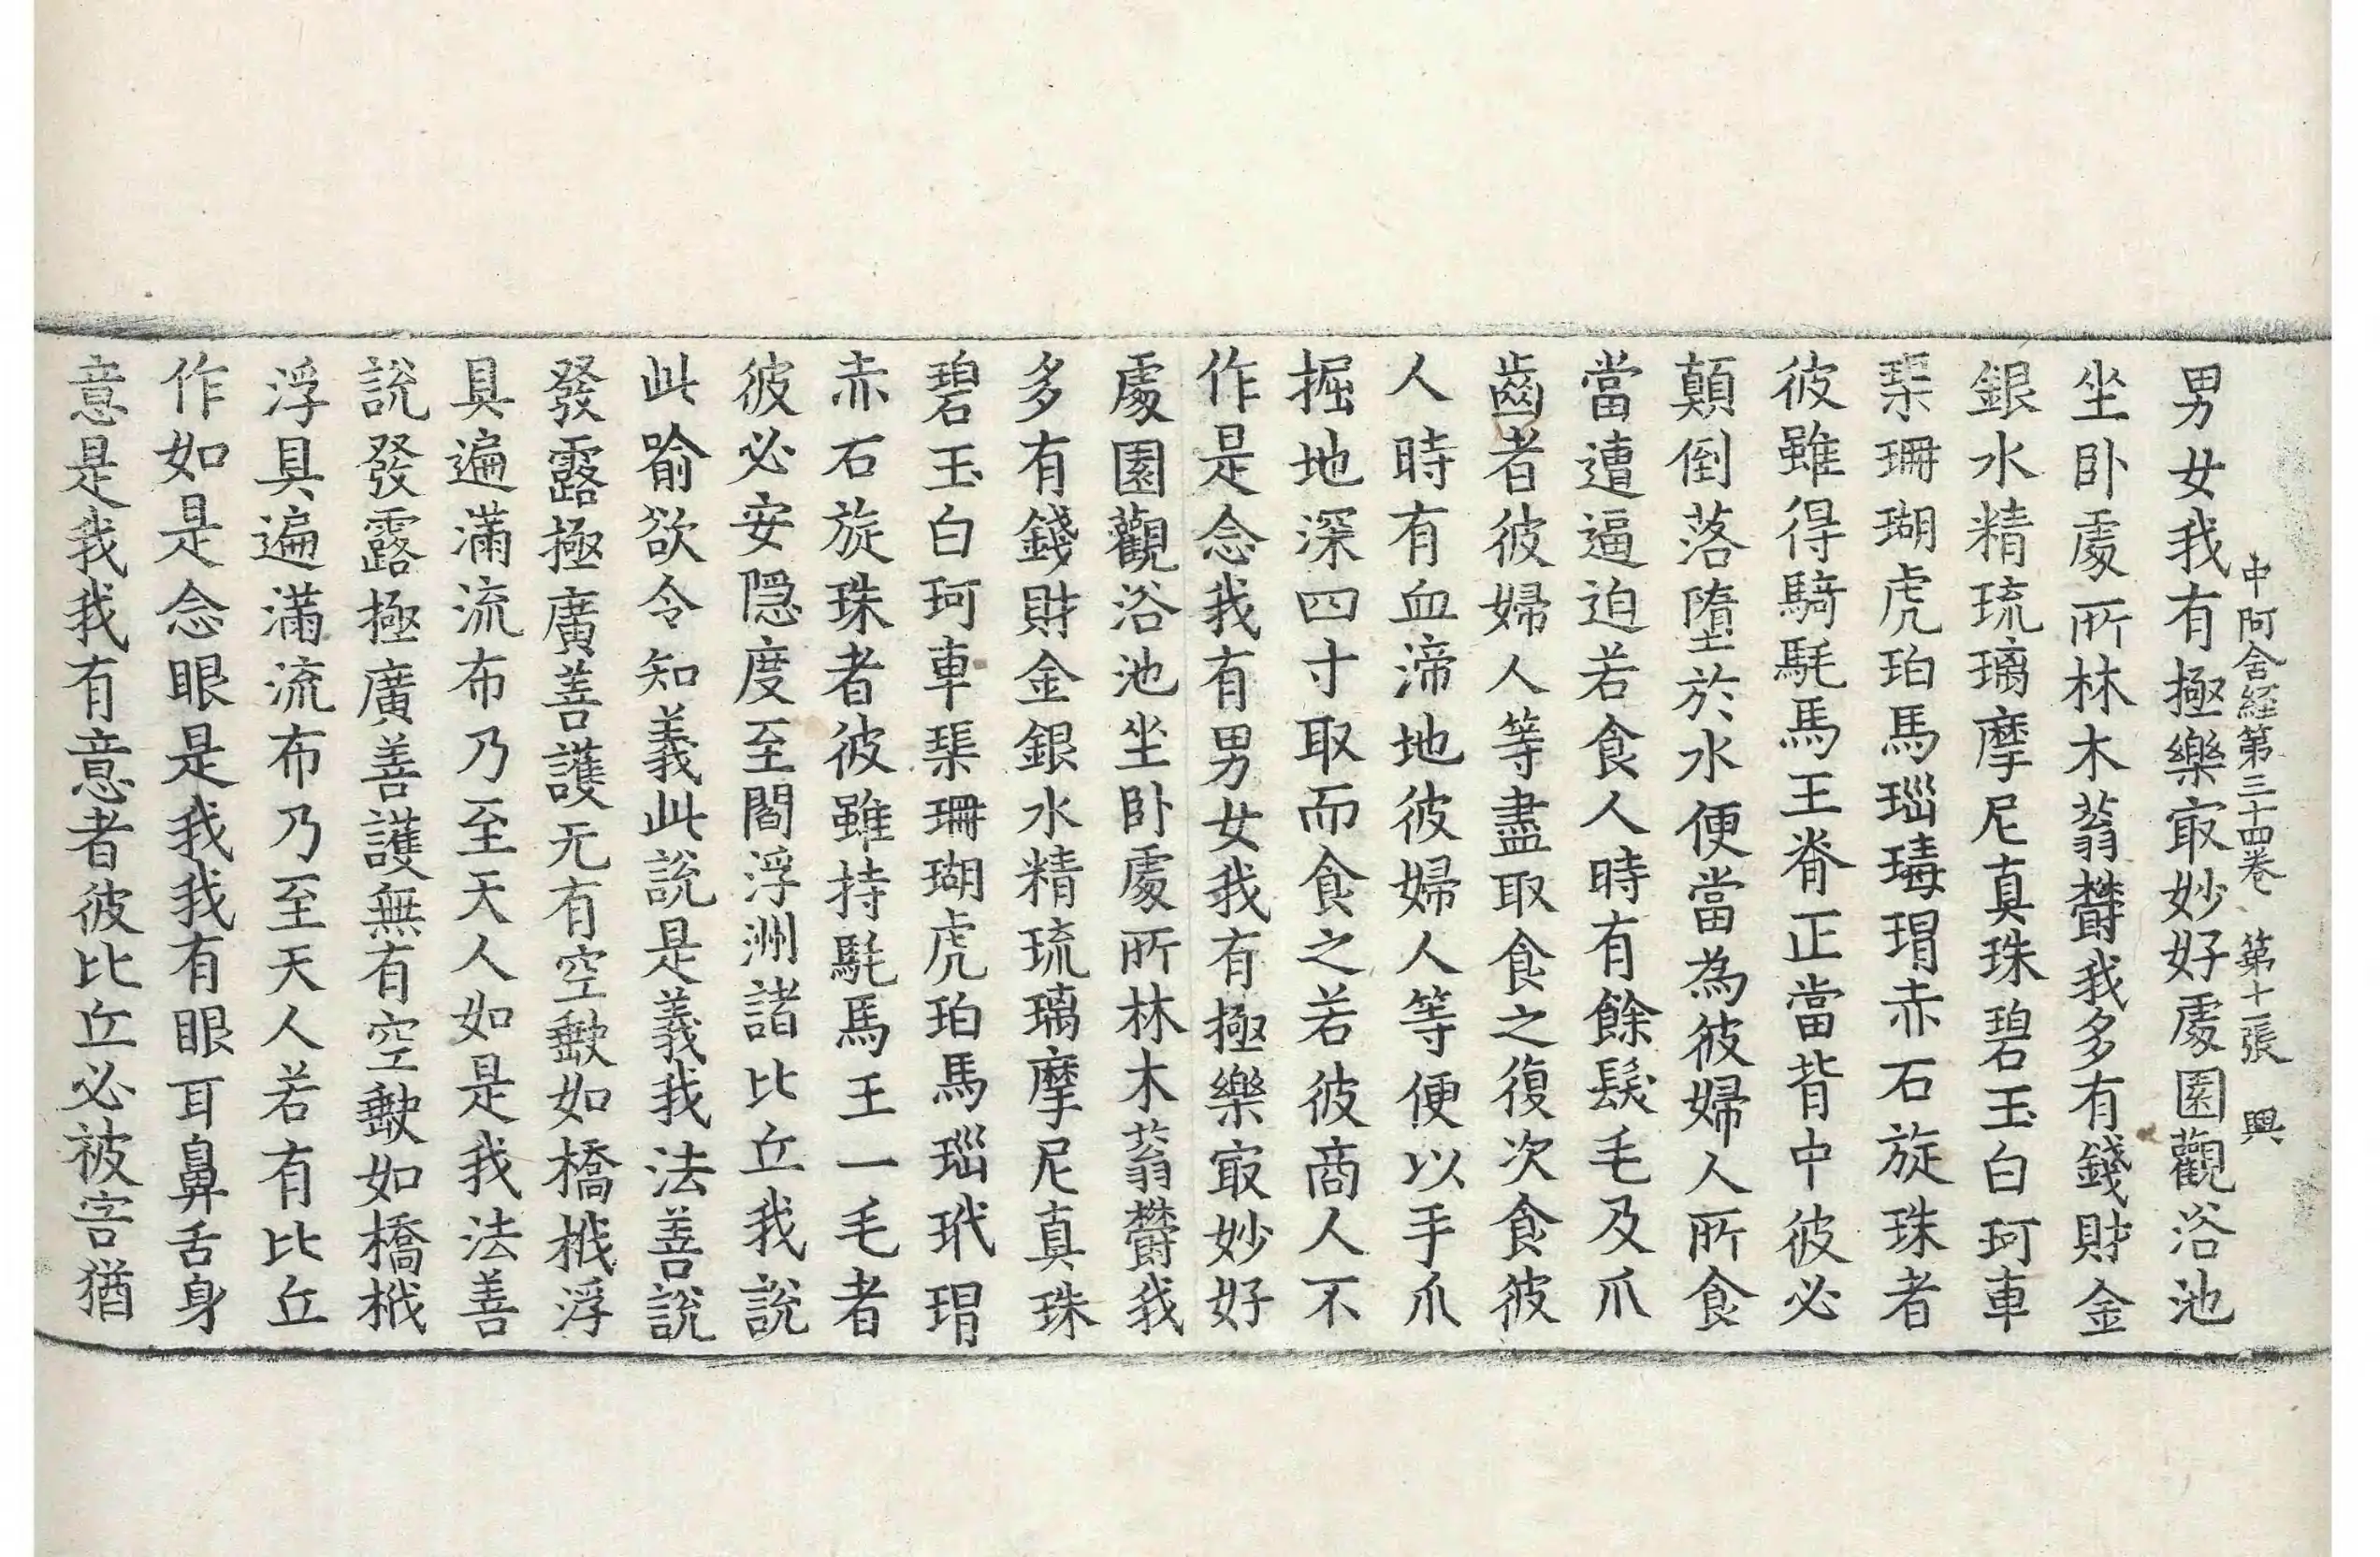 中阿含經第三十四卷 第十一張 興
男女我有極樂㝡妙好處園觀浴池
坐卧處所林木蓊欝我多有錢財金
銀水精琉璃摩尼真珠碧玉白珂車
璖珊瑚虎珀馬瑙瑇瑁赤石旋珠者
彼雖得騎駀馬王脊正當背中彼必
顛倒落墮於水便當為彼婦人所食
當遭逼迫若食人時有餘髮毛及爪
齒者彼婦人等盡取食之復次食彼
人時有血渧地彼婦人等便以手爪
掘地深四寸取而食之若彼商人不
作是念我有男女我有極樂㝡妙好
處園觀浴池坐卧處所林木蓊欝我
多有錢財金銀水精琉璃摩尼真珠
碧玉白珂車璖珊瑚虎珀馬瑙玳瑁
赤石旋珠者彼雖持駀馬王一毛者
彼必安隱度至閻浮洲諸比丘我說
此喻欲令知義此說是義我法善說
發露極廣善護无有空缺如橋栰浮
具遍滿流布乃至天人如是我法善
說發露極廣善護無有空缺如橋栰
浮具遍滿流布乃至天人若有比丘
作如是念眼是我我有眼耳鼻舌身
意是我我有意者彼比丘必被害猶